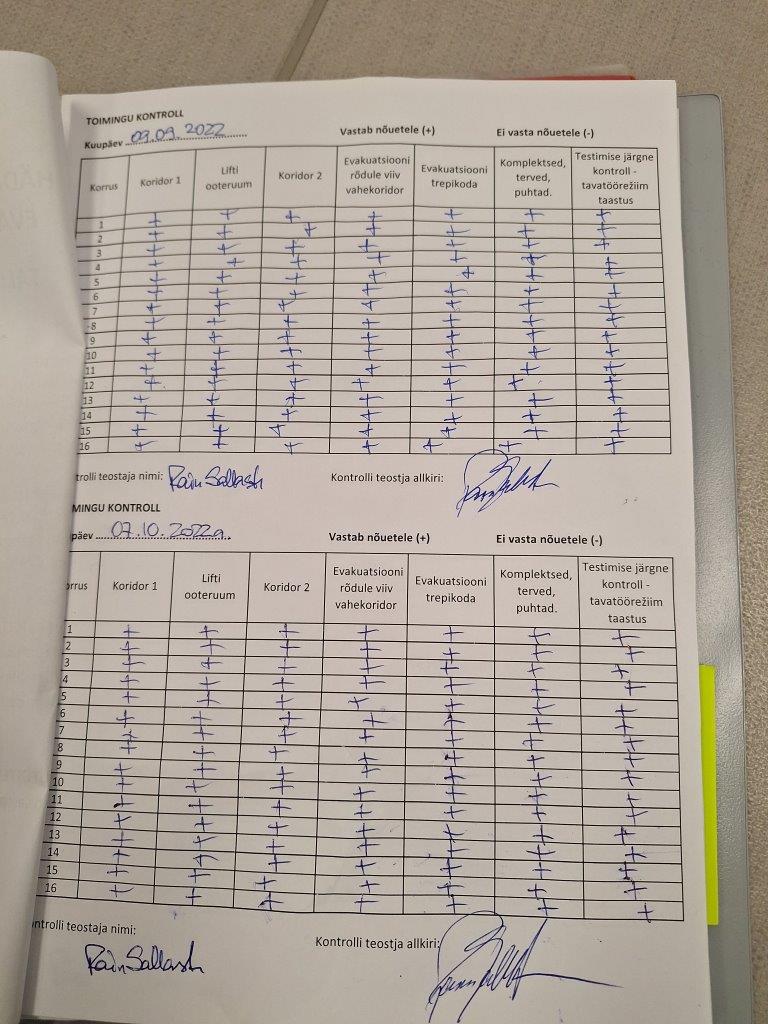 TOIMINGU KONTROLL
Kuupäev 09.09.2022 Vastab nõuetele (+) Ei vasta nõuetele (-)
Korrus Koridor 1 Lifti ooteruum Koridor 2 Evakuatsiooni rõdule viiv vahekoridor Evakuatsiooni trepikoda Komplektsed, terved, puhtad. Testimise järgne kontroll - tavatöörežiim taastus
1 + + + + + + +
2 + + + + + + +
3 + + + + + + +
4 + + + + + + +
5 + + + + + + +
6 + + + + + + +
7 + + + + + + +
8 + + + + + + +
9 + + + + + + +
10 + + + + + + +
11 + + + + + + +
12 + + + + + + +
13 + + + + + + +
14 + + + + + + +
15 + + + + + + +
16 + + + + + + +
trolli teostaja nimi: Rain Sallash Kontrolli teostja allkiri:
MINGU KONTROLL
päev 07.10.2022a Vastab nõuetele (+) Ei vasta nõuetele (-)
orrus Koridor 1 Lifti ooteruum Koridor 2 Evakuatsiooni rõdule viiv vahekoridor Evakuatsiooni trepikoda Komplektsed, terved, puhtad. Testimise järgne kontroll - tavatöörežiim taastus
1 + + + + + + +
2 + + + + + + +
3 + + + + + + +
4 + + + + + + +
5 + + + + + + +
6 + + + + + + +
7 + + + + + + +
8 + + + + + + +
9 + + + + + + +
10 + + + + + + +
11 + + + + + + +
12 + + + + + + +
13 + + + + + + +
14 + + + + + + +
15 + + + + + + +
16 + + + + + + +
ntrolli teostaja nimi: Kontrolli teostja allkiri:
Rain Sallash